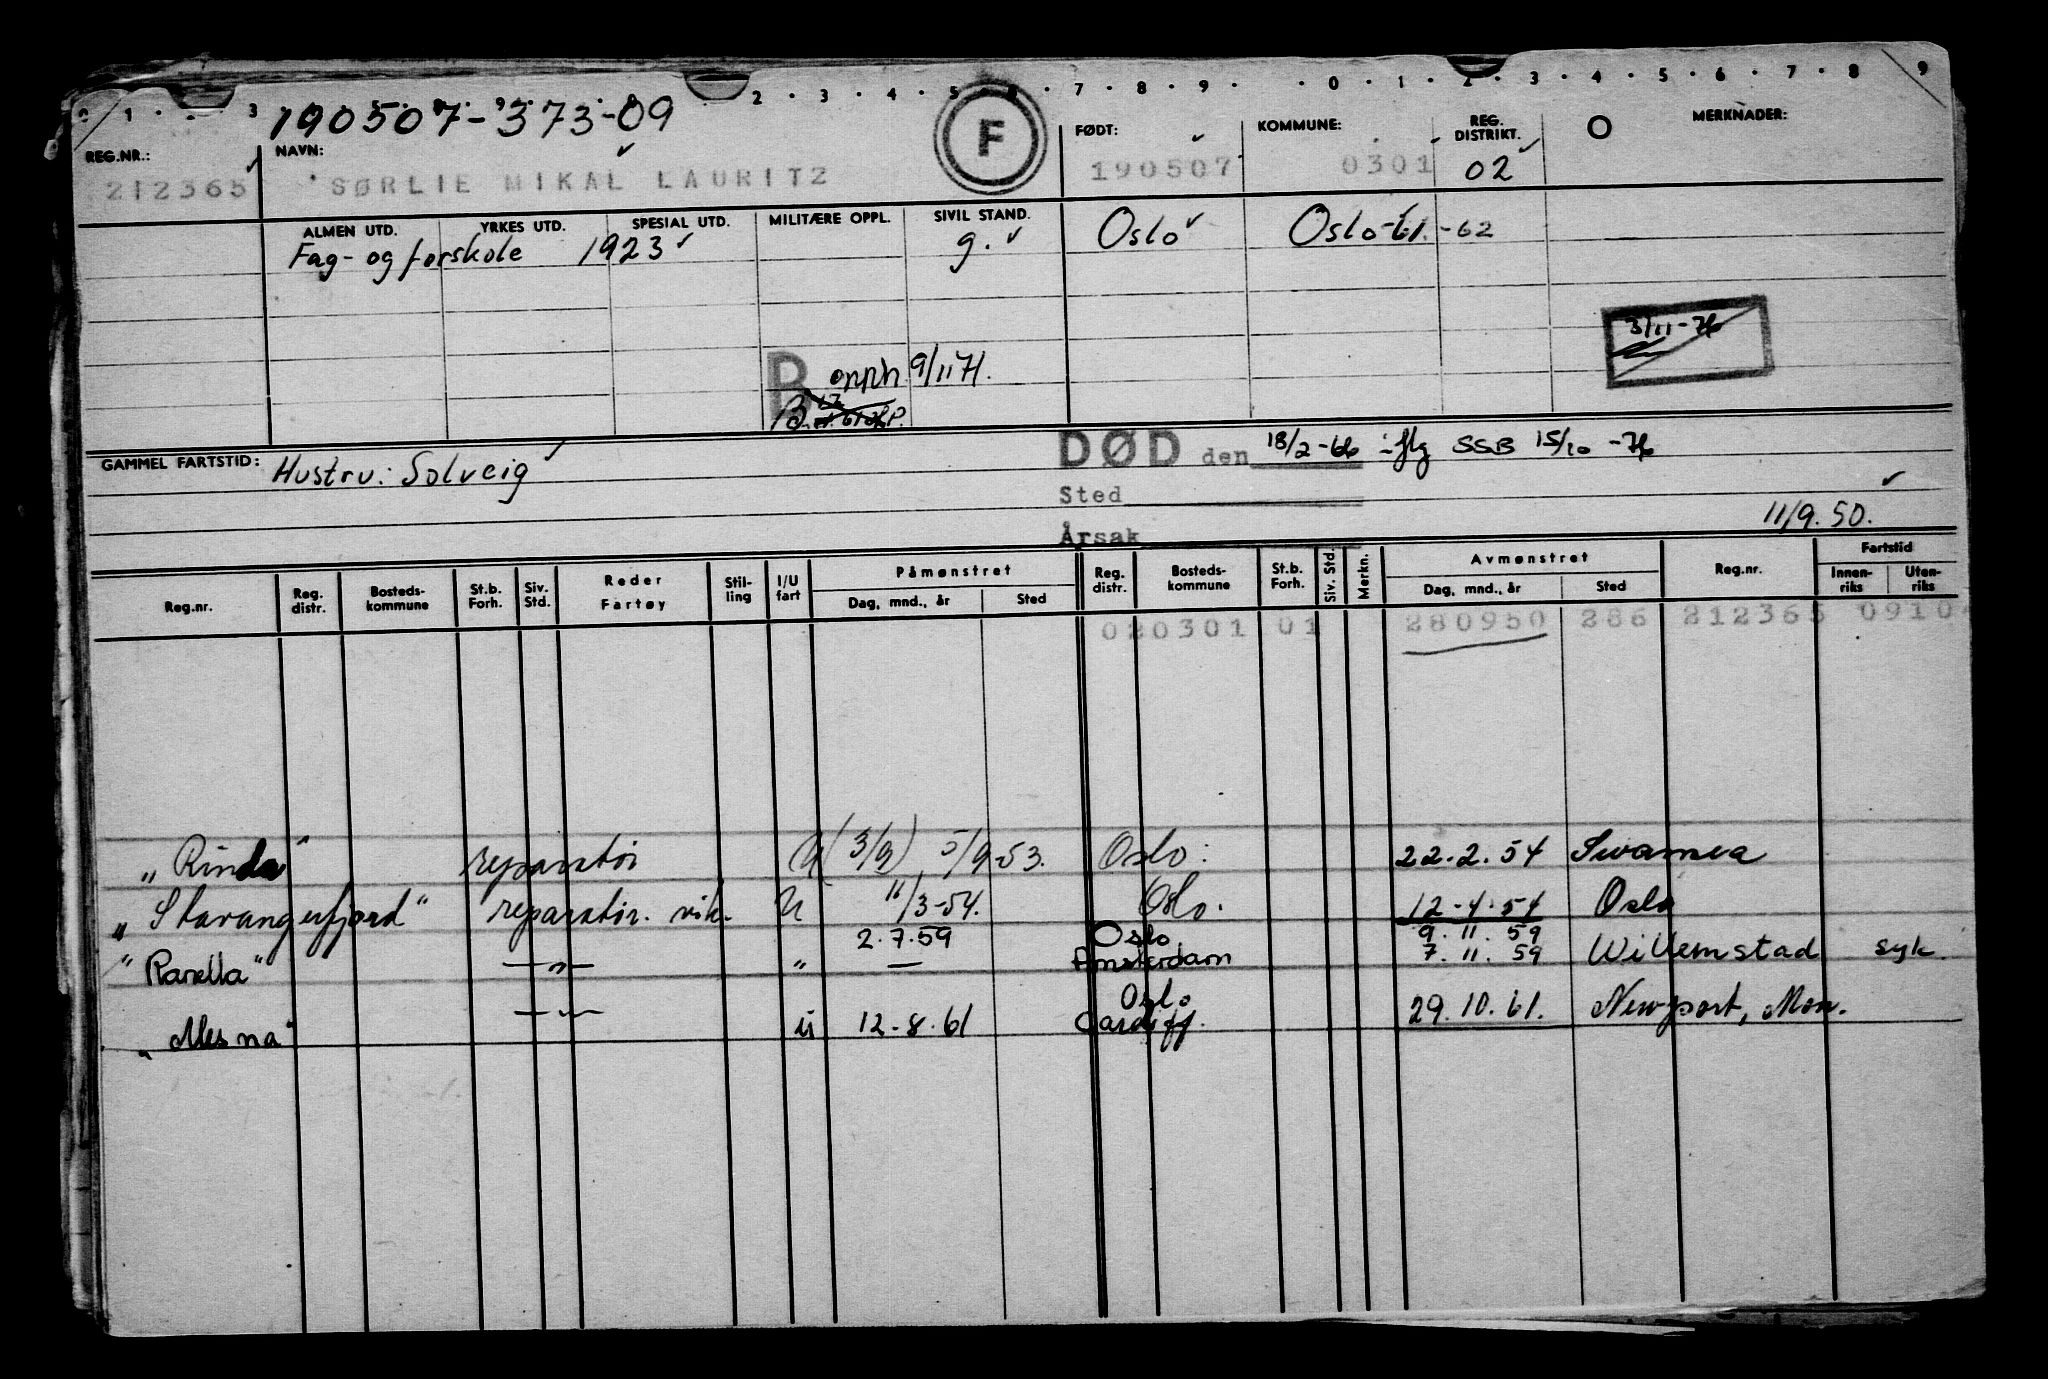 1 . . 3 . . 2 . 3 . 4 . 5 . 6 . 7 . 8 . 9 . . 0 . 1 . 2 . 3 . 4 . 5 . 6 . 7 . 8 . 9
190507-373-09
F
REG.NR.: NAVN: FØDT: KOMMUNE: REG. DISTRIKT. O MERKNADER:
212365 SØRLIE MIKAL LAURITZ 190507 0301 02
ALMEN UTD. YRKES UTD. SPESIAL UTD. MILITÆRE OPPL. SIVIL STAND.
Fag- og forskole 1923 g. Oslo Oslo-61.-62
3/11-76
B opph 9/11 71.
B.
GAMMEL FARTSTID: Hustru: Solveig
DØD den 18/2-66 iflg SSB 15/10-76
Sted
11/9.50.
Årsak
Reg.nr. Reg. distr. Bosteds-kommune St.b. Forh. Siv. Std. Reder Fartøy Stil-ling I/U fart Påmønstret Dag, mnd., år Sted Reg. distr. Bosteds-kommune St.b. Forh. Siv. Std. Merkn. Avmønstret Dag, mnd., år Sted Reg.nr. Fartstid Innen-riks Uten-riks
020301 01 280950 286 212365 0910
"Rinda" reparatør U (3/9) 5/9-53. Oslo: 22.2.54 Swansea
"Stavangerfjord" reparatør. vik. U 11/3-54. Oslo. 12-4-54 Oslo
2.7.59 Oslo 9.11.59
"Ranella" —"— " — Amsterdam 7.11.59 Willemstad syk.
Oslo
"Mesna" —"— U 12-8-61 Cardiff. 29.10.61. Newport, Mon.